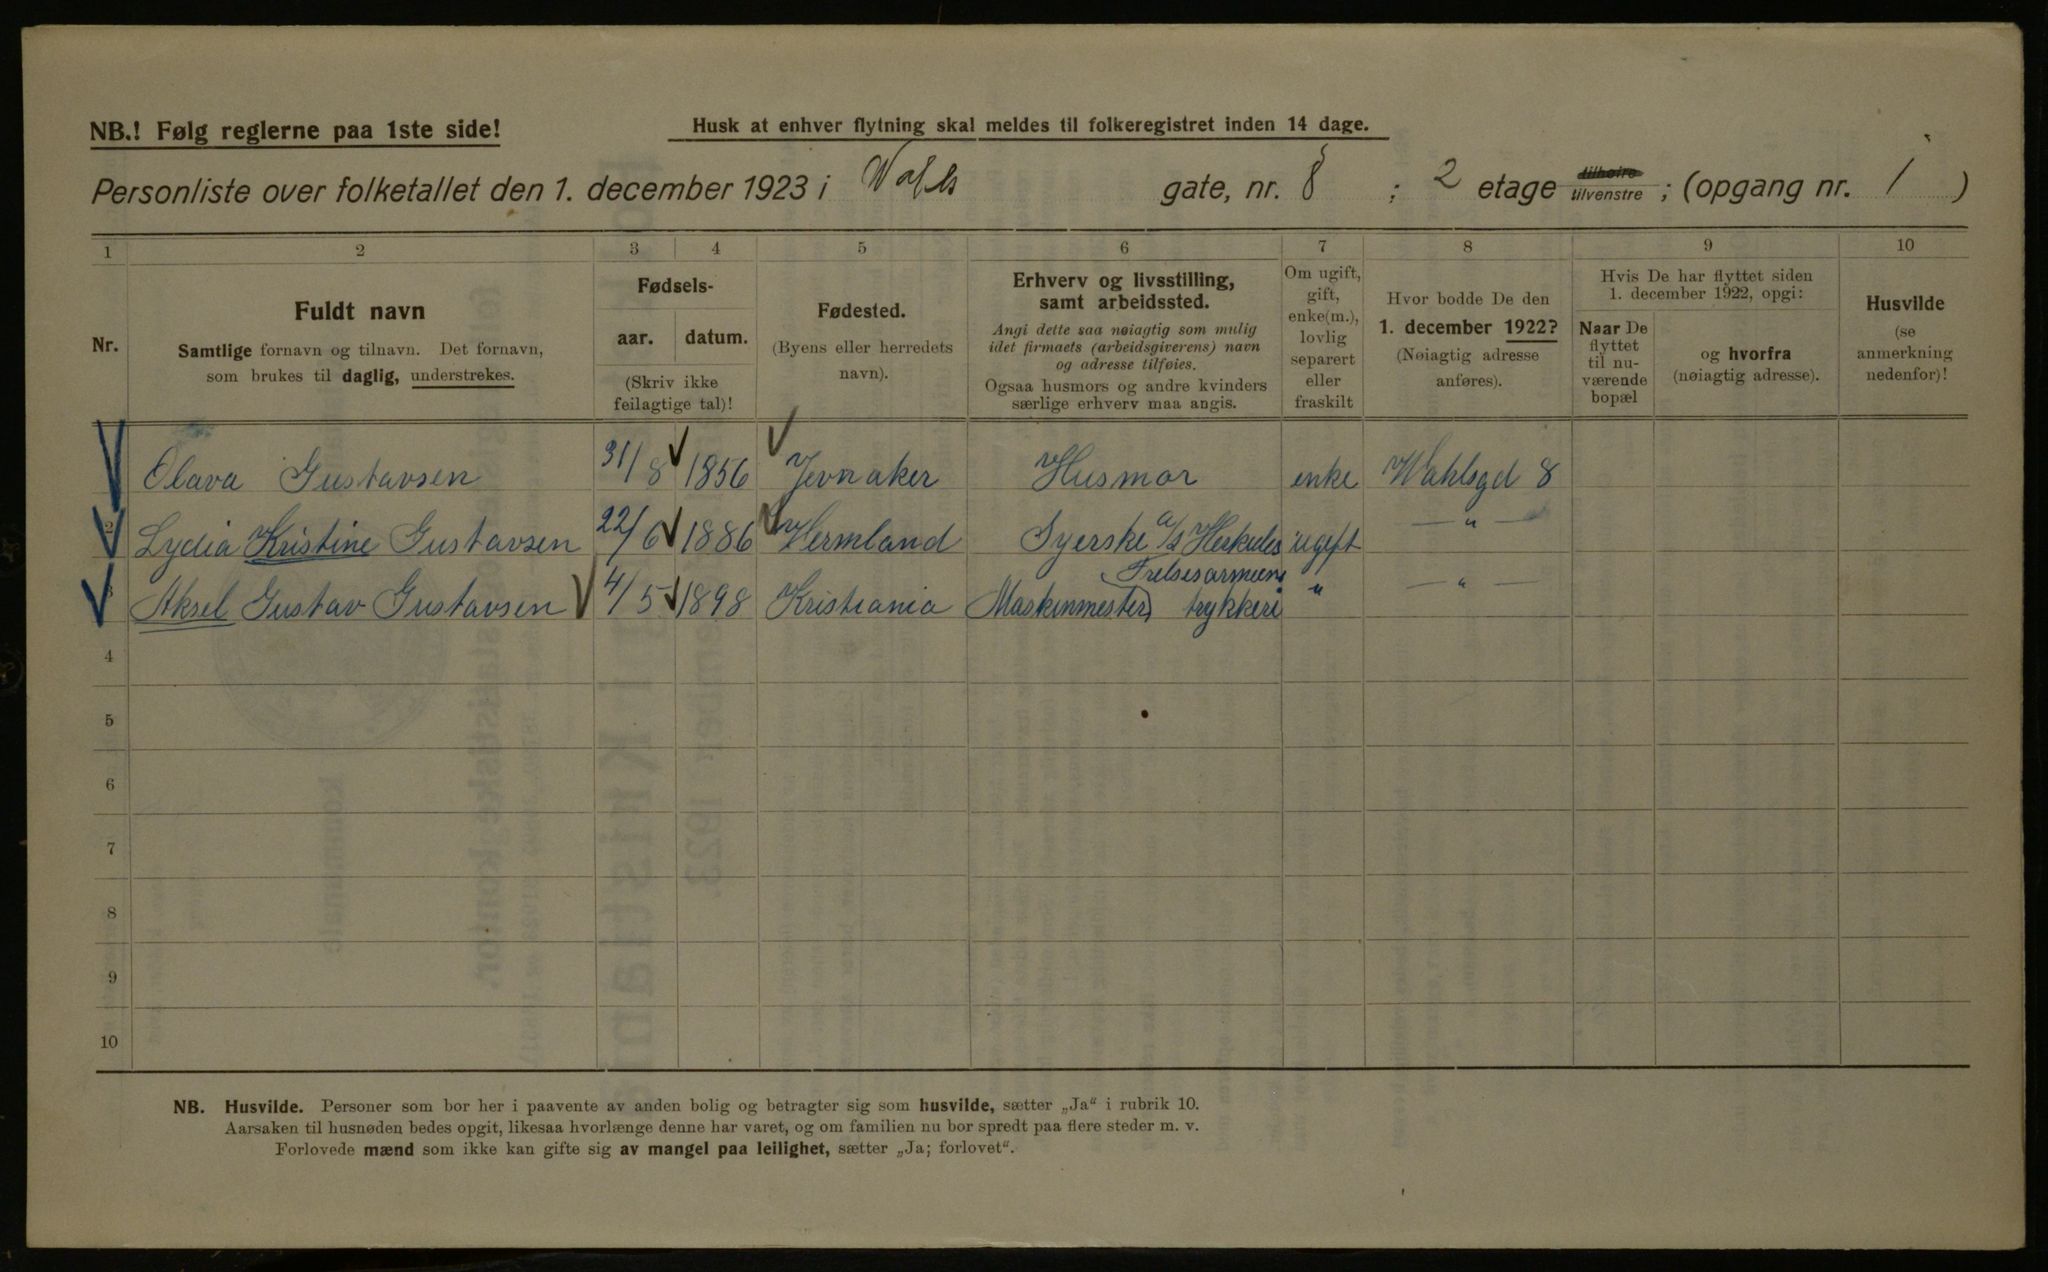 NB.! Følg reglerne paa 1ste side!
Husk at enhver flytning skal meldes til folkeregistret inden 14 dage.
Personliste over folketallet den 1. december 1923 i Wahls gate, nr. 8 ; 2 etage tilhøire tilvenstre ; (opgang nr. 1 )
1 2 3 4 5 6 7 8 9 10
Nr.
Fuldt navn
Samtlige fornavn og tilnavn. Det fornavn,
som brukes til daglig, understrekes.
Fødsels-
aar. datum.
(Skriv ikke
feilagtige tal)!
Fødested.
(Byens eller herredets
navn).
Erhverv og livsstilling,
samt arbeidssted.
Angi dette saa nøiagtig som mulig
idet firmaets (arbeidsgiverens) navn
og adresse tilføies.
Ogsaa husmors og andre kvinders
særlige erhverv maa angis.
Om ugift,
gift,
enke(m.),
lovlig
separert
eller
fraskilt
Hvor bodde De den
1. december 1922?
(Nøiagtig adresse
anføres).
Hvis De har flyttet siden
1. december 1922, opgi:
Naar De
flyttet
til nu-
værende
bopæl
og hvorfra
(nøiagtig adresse).
Husvilde
(se
anmerkning
nedenfor)!
Olava Gustavsen 31/8 1856 Jevnaker Husmor enke Wahlsgd 8
2 Lydia Kristine Gustavsen 22/6 1886 Vermland Syerske a/s Herkules ugift — " —
Frelsesarmeens
3 Aksel Gustav Gustavsen 4/5 1898 Kristiania Maskinmester trykkeri " — " —
4
5
6
7
8
9
10
NB. Husvilde. Personer som bor her i paavente av anden bolig og betragter sig som husvilde, sætter „Ja" i rubrik 10.
Aarsaken til husnøden bedes opgit, likesaa hvorlænge denne har varet, og om familien nu bor spredt paa flere steder m. v.
Forlovede mænd som ikke kan gifte sig av mangel paa leilighet, sætter „Ja; forlovet".